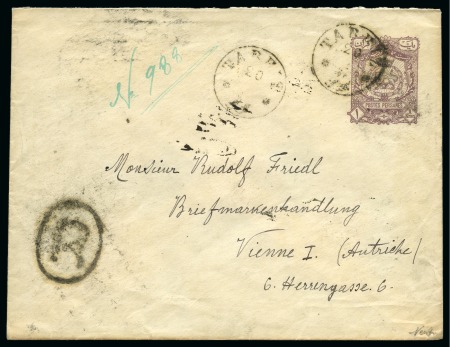 No 988
TABRIZ
20
TABRIZ
20
POSTE PERSANE
R
Monsieur Rudolf Friedl
"Briefmarkenhandlung"
Vienne I. (Autriche)
6. Herrengasse 6.